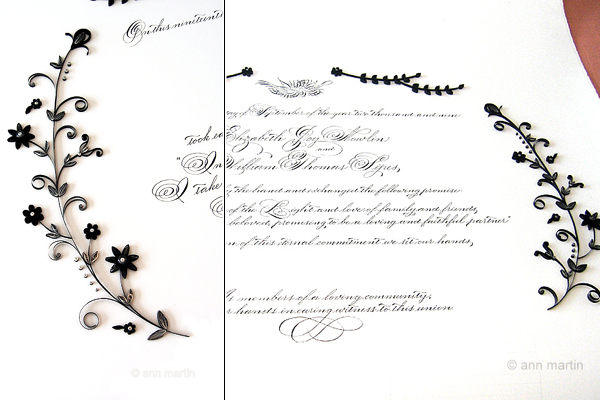 On this nineteenth
took ea
"In
I take
© ann martin
day of September of the year two thousand and nine
Elizabeth Guy Nowlin
and
William Thomas Syres,
the hand and exchanged the following promise
of the Light and love of family and friends,
beloved, promising to be a loving and faithful partner
n of this eternal commitment we set our hands,
members of a loving community,
r hands in caring witness to this union
© ann martin